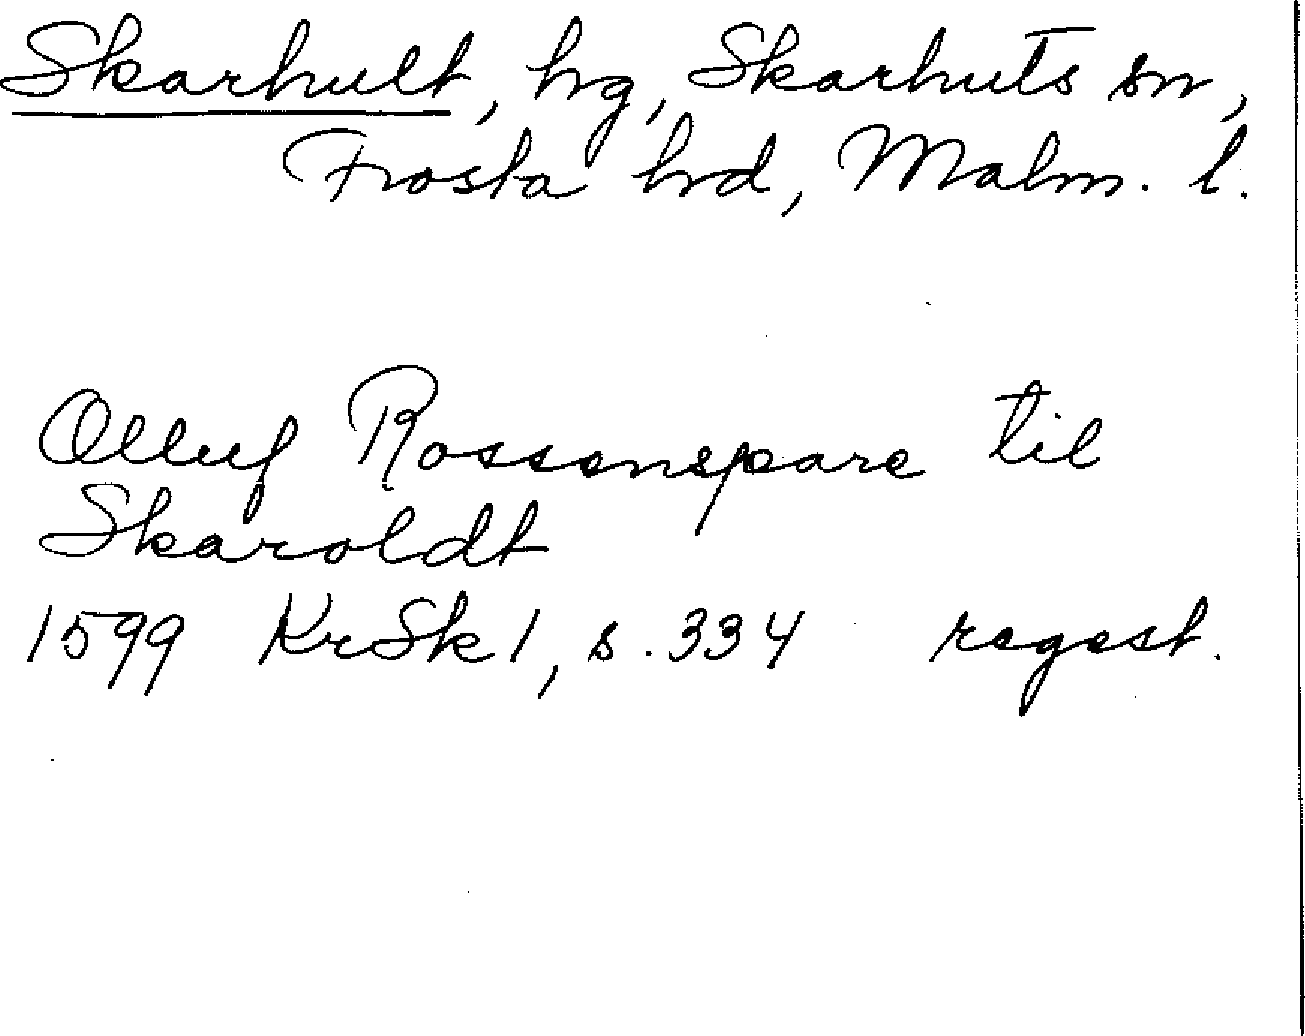 Skarhult, hg, Skarhuts sn,
Frosta hrd, Malm. l.
Olluf Rossenspare til
Skaroldt
1599 KrSk 1, s. 334 regest.